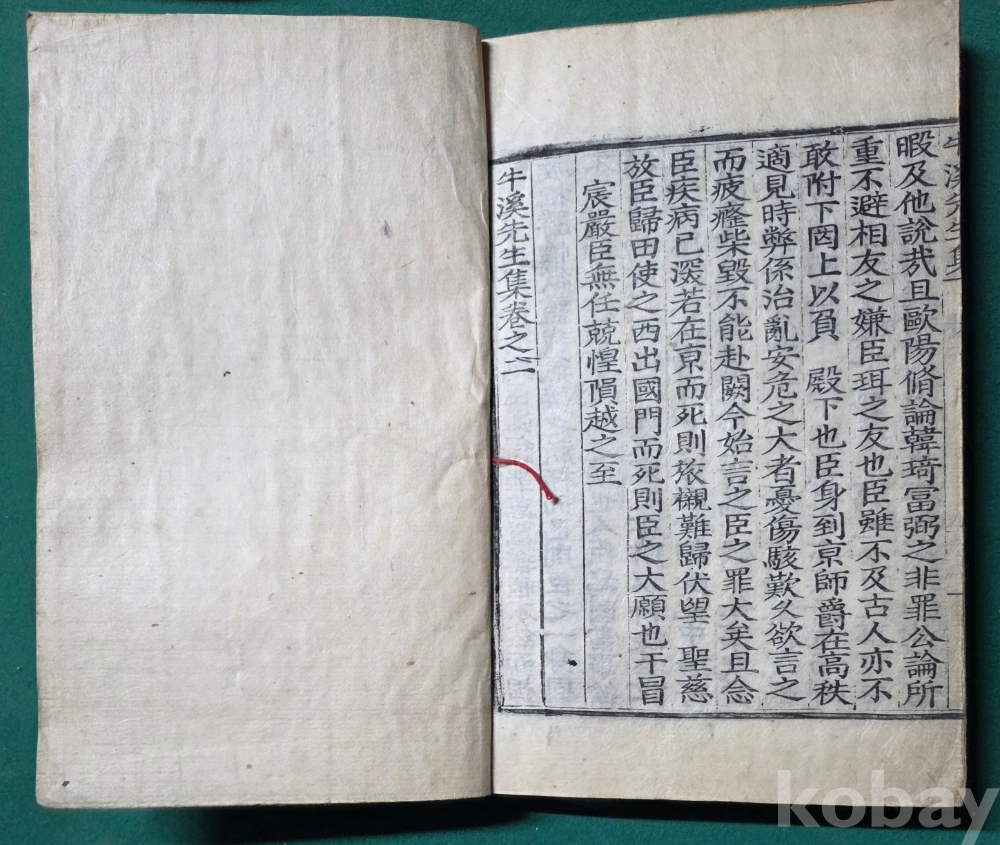 暇及他說㢤且歐陽脩論韓琦冨弼之非罪公論所
重不避相友之嫌臣珥之友也臣雖不及古人亦不
敢附下罔上以負　殿下也臣身到京師爵在高秩
適見時弊係治亂安危之大者憂傷駭歎久欲言之
而疲癃柴毀不能赴闕今始言之臣之罪大矣且念
臣疾病已深若在京而死則旅櫬難歸伏望　聖慈
放臣歸田使之西出國門而死則臣之大願也干冒
宸嚴臣無任兢惶隕越之至
牛溪先生集卷之二
牛溪先生集
kobay